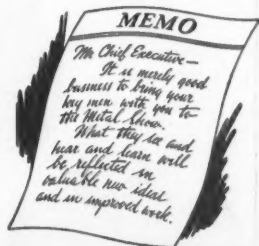 MEMO
Mr Chief Executive—
It is merely good
business to bring your
key men with you to
the Metal Show.
What they see and
hear and learn will
be reflected in
valuable new ideas
and in improved work.